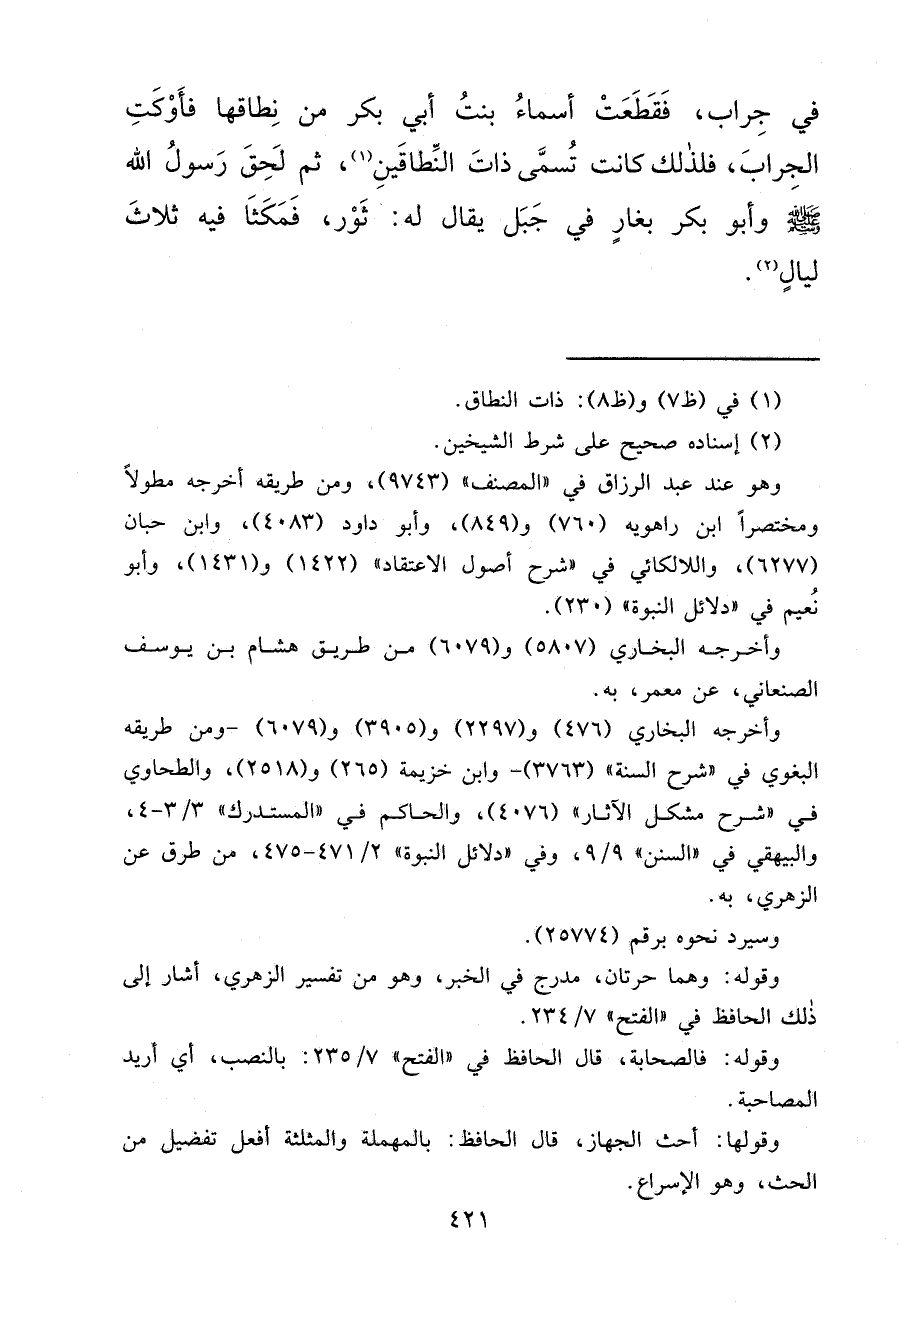 في جِراب، فَقَطَعَتْ أسماءُ بنتُ أبي بكر من نِطاقها فأَوْكَتِ
الجِرابَ، فلذٰلك كانت تُسمَّى ذاتَ النِّطاقَينِ(١)، ثم لَحِقَ رَسولُ الله
ﷺ وأبو بكر بغارٍ في جَبَل يقال له: ثَوْر، فَمَكَثَا فيه ثلاثَ
ليالٍ(٢).
(١) في (ظ٧) و(ظ٨): ذات النطاق.
(٢) إسناده صحيح على شرط الشيخين.
وهو عند عبد الرزاق في «المصنف» (٩٧٤٣)، ومن طريقه أخرجه مطولاً
ومختصراً ابن راهويه (٧٦٠) و(٨٤٩)، وأبو داود (٤٠٨٣)، وابن حبان
(٦٢٧٧)، واللالكائي في «شرح أصول الاعتقاد» (١٤٢٢) و(١٤٣١)، وأبو
نُعيم في «دلائل النبوة» (٢٣٠).
وأخرجه البخاري (٥٨٠٧) و(٦٠٧٩) من طريق هشام بن يوسف
الصنعاني، عن معمر، به.
وأخرجه البخاري (٤٧٦) و(٢٢٩٧) و(٣٩٠٥) و(٦٠٧٩) -ومن طريقه
البغوي في «شرح السنة» (٣٧٦٣)- وابن خزيمة (٢٦٥) و(٢٥١٨)، والطحاوي
في «شرح مشكل الآثار» (٤٠٧٦)، والحاكم في «المستدرك» ٣/٣-٤،
والبيهقي في «السنن» ٩/٩، وفي «دلائل النبوة» ٢/٤٧١-٤٧٥، من طرق عن
الزهري، به.
وسيرد نحوه برقم (٢٥٧٧٤).
وقوله: وهما حرتان، مدرج في الخبر، وهو من تفسير الزهري، أشار إلى
ذٰلك الحافظ في «الفتح» ٧/٢٣٤.
وقوله: فالصحابة، قال الحافظ في «الفتح» ٧/٢٣٥: بالنصب، أي أريد
المصاحبة.
وقولها: أحث الجهاز، قال الحافظ: بالمهملة والمثلثة أفعل تفضيل من
الحث، وهو الإسراع.
٤٢١